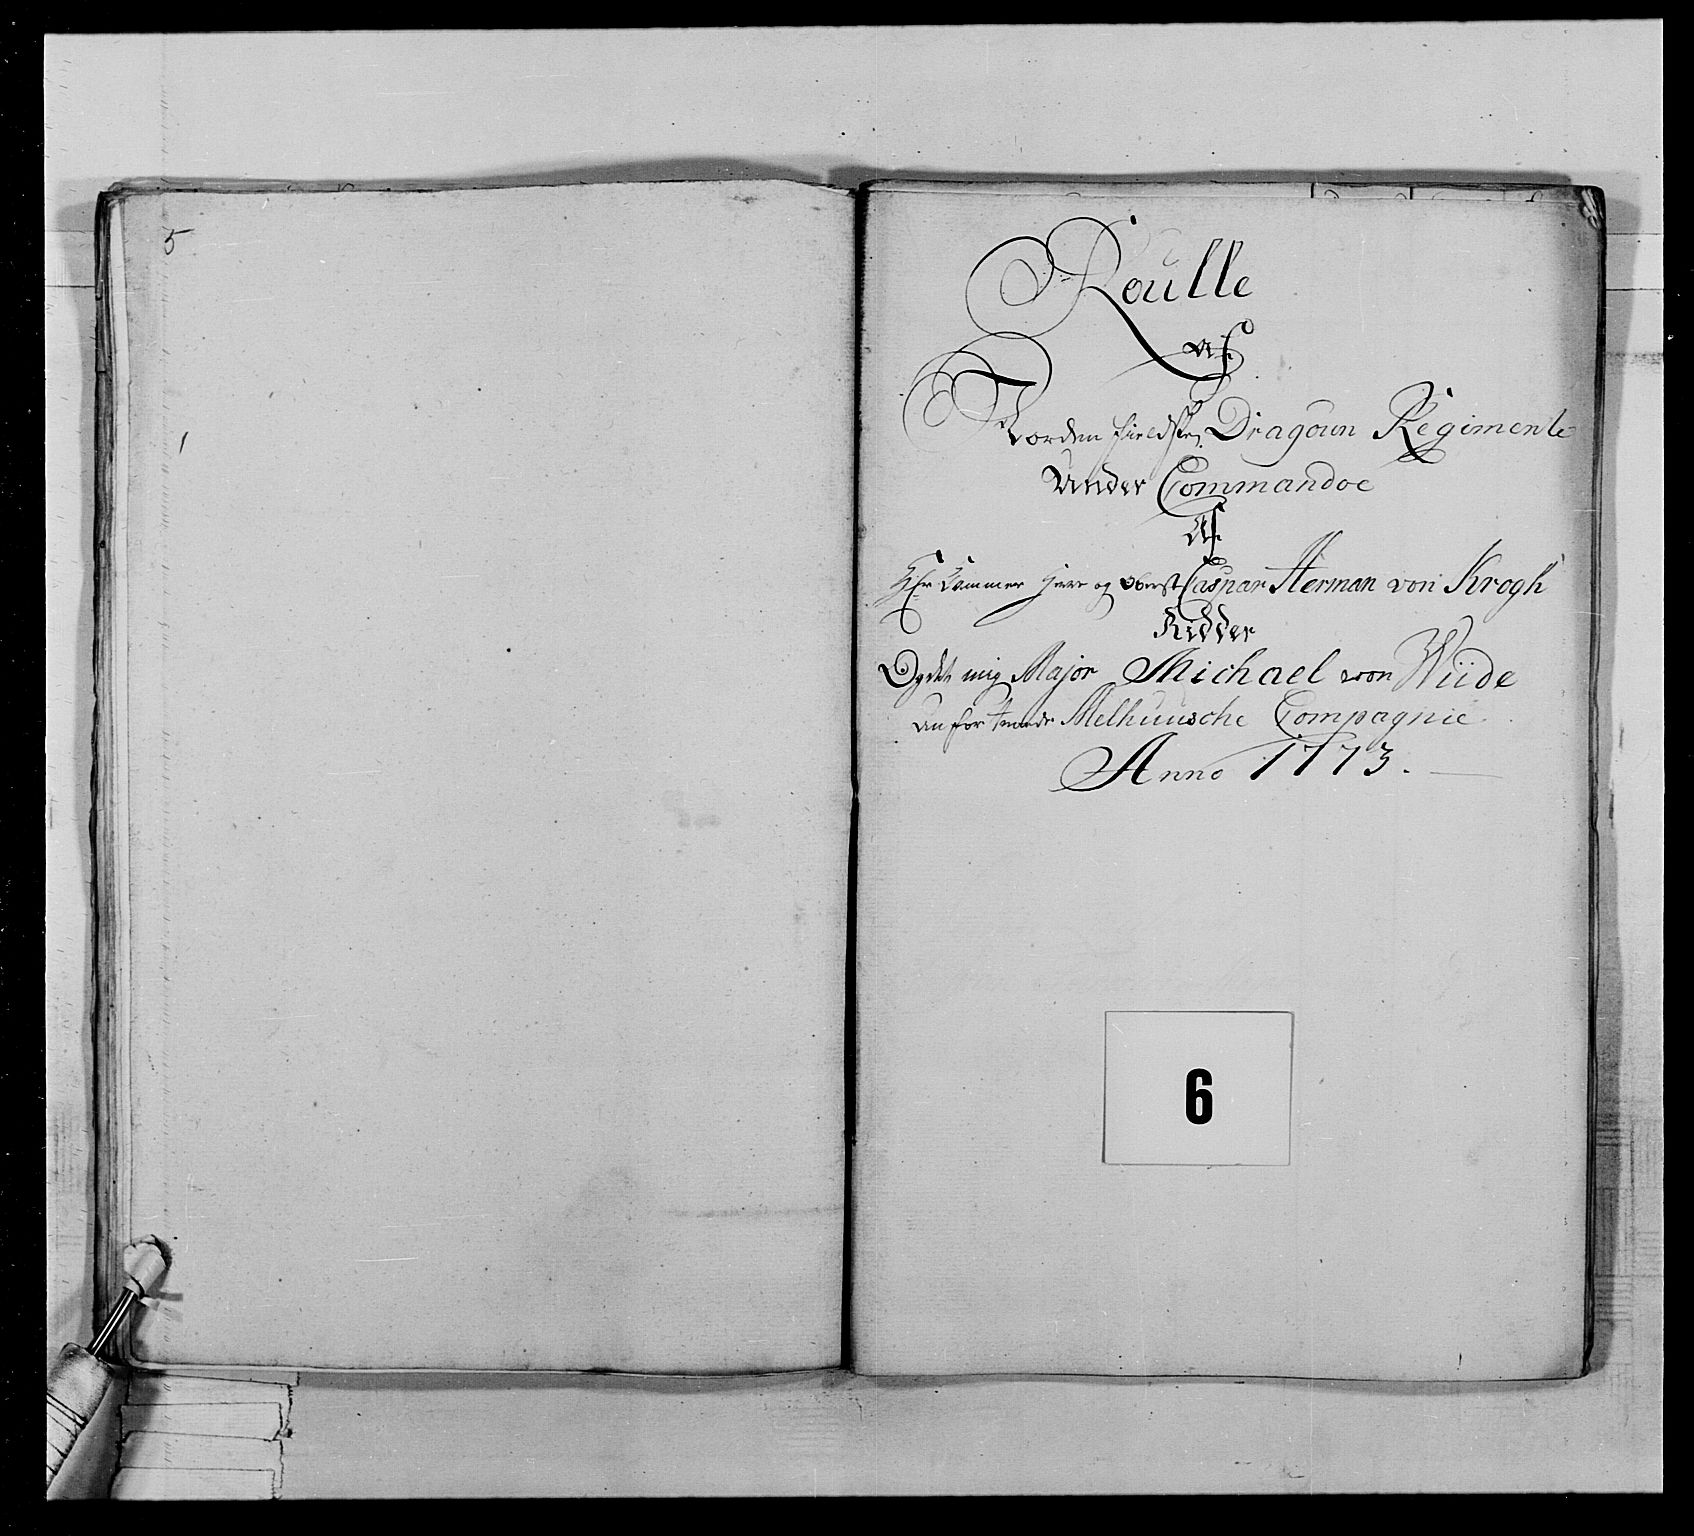 5
Roulle
af
Norden fieldske Dragoun Regimente
Under Commandoe
Af
Hr Kammer Herre og Oberst Caspar Herman von Krogh
Ridder
Og det mig Major Michael von Wiide
anfortroede Melhuusche Compagnie
Anno 1773.
6